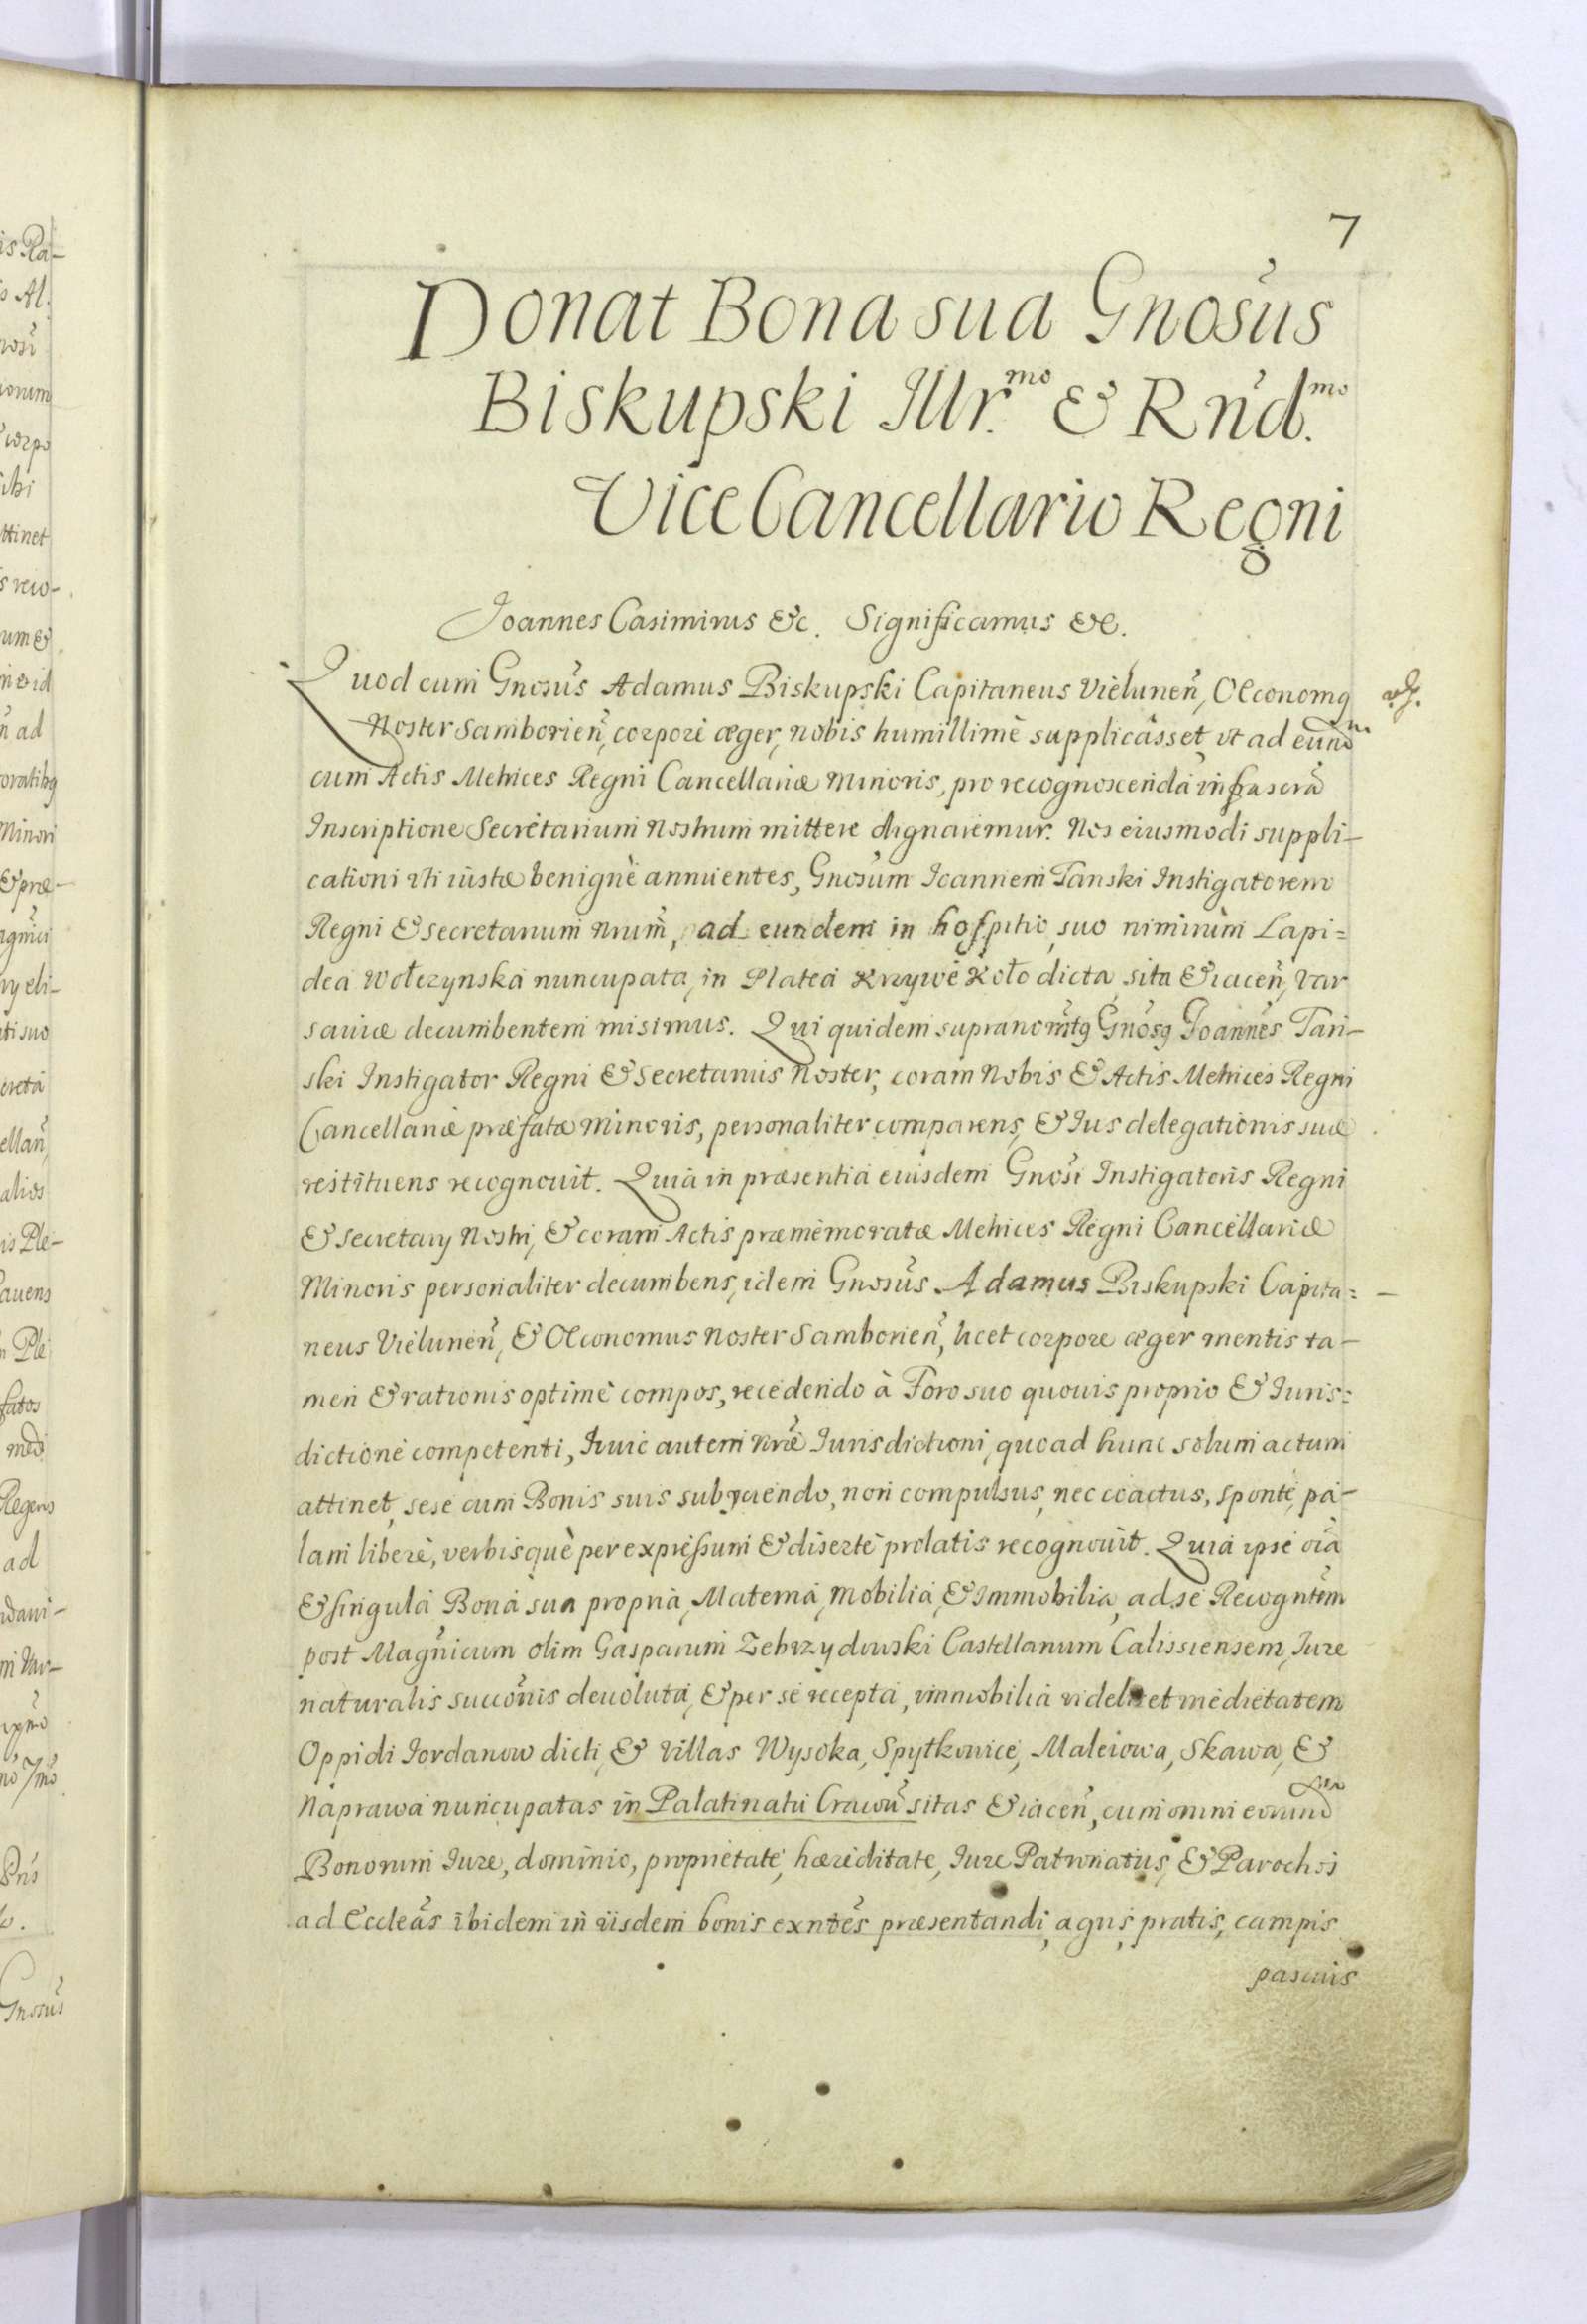 7
Donat Bona sua Gnosus
Biskupski Illr.mo & Rnd.mo
Vice Cancellario Regni
Joannes Casimirus &c. Significamus &c.
Quod cum Gnosus Adamus Biskupski Capitaneus Vielunen, Oeconomq
Noster Samborien, corpore æger, nobis humillimè supplicâsset, vt ad eundem
cum Actis Metrices Regni Cancellariæ Minoris, pro recognoscendâ infrascrâ
Inscriptione Secretarium Nostrum mittere dignaremur. Nos eiusmodi suppli-
cationi vti iustæ benignè annuentes, Gnosum Ioannem Tanski Instigatorem
Regni & Secretarium nrum, ad eundem in hospitio suo nimirùm Lapi=
dea Wołczynska nuncupata, in Plateâ Krzywe Koło dicta, sita & iacen, Var
sauiæ decumbentem misimus. Qui quidem supranomtq Gnosq Joannes Tan-
ski Instigator Regni & Secretarius Noster, coram Nobis & Actis Metrices Regni
Cancellariæ præfatæ Minoris, personaliter comparens, & Ius delegationis suæ
restituens recognouit. Quia in præsentiâ eiusdem Gnosi Instigatoris Regni
& Secretarij Nostri, & coram Actis præmemoratæ Metrices Regni Cancellariæ
Minoris personaliter decumbens, idem Gnosus Adamus Biskupski Capita=
neus Vielunen, & Oeconomus Noster Samborien, licet corpore æger mentis ta-
men & rationis optimè compos, recedendo à Foro suo quouis proprio & Iuris=
dictione competenti, huic autem nræ Iurisdictioni, quoad hunc solum actum
attinet, sese cum Bonis suis subijciendo, non compulsus, nec coactus, sponte, pa-
lam liberè, verbisquè per expressum & disertè prolatis recognouit. Quia ipse oia
& singula Bona sua propria, Materna, Mobilia, & Immobilia, ad se Recogntem
post Magnicum olim Gasparum Zebrzydowski Castellanum Calissiensem, Iure
naturalis succonis deuoluta, & per se recepta, immobilia videlicet medietatem
Oppidi Iordanow dicti, & Villas Wysoka, Spytkowice, Maleiowa, Skawa, &
Naprawa nuncupatas in Palatinatu Cracou sitas & iacen, cum omni eorundem
Bonorum Iure, dominio, proprietate, hæreditate, Iure Patronatus, & Parochos
ad Eccleas ibidem in iisdem bonis exntes præsentandi, agris, pratis, campis
pascuis